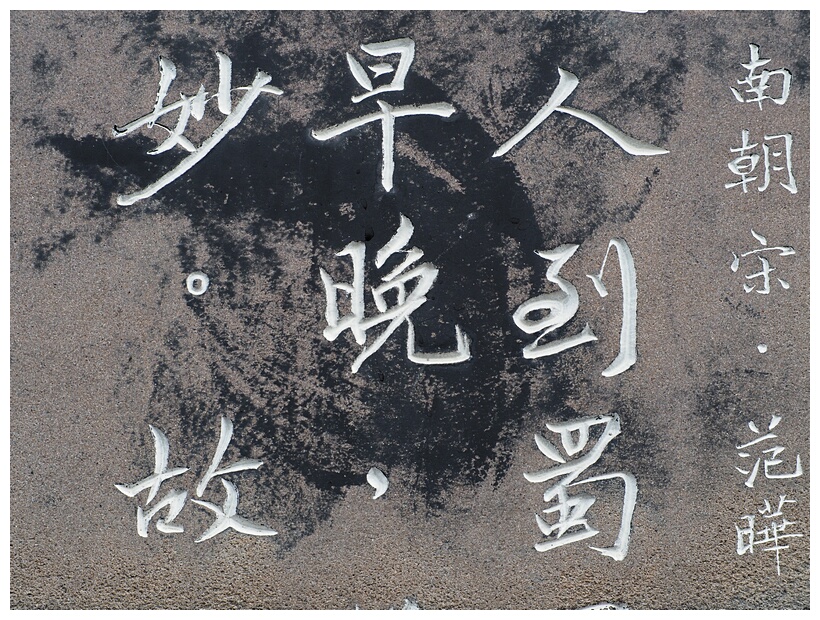 南朝宋·范曄
人到蜀
早晚，
妙。故